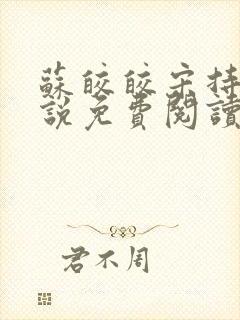 蘇皎皎宋持
說免費閱讀
君不周